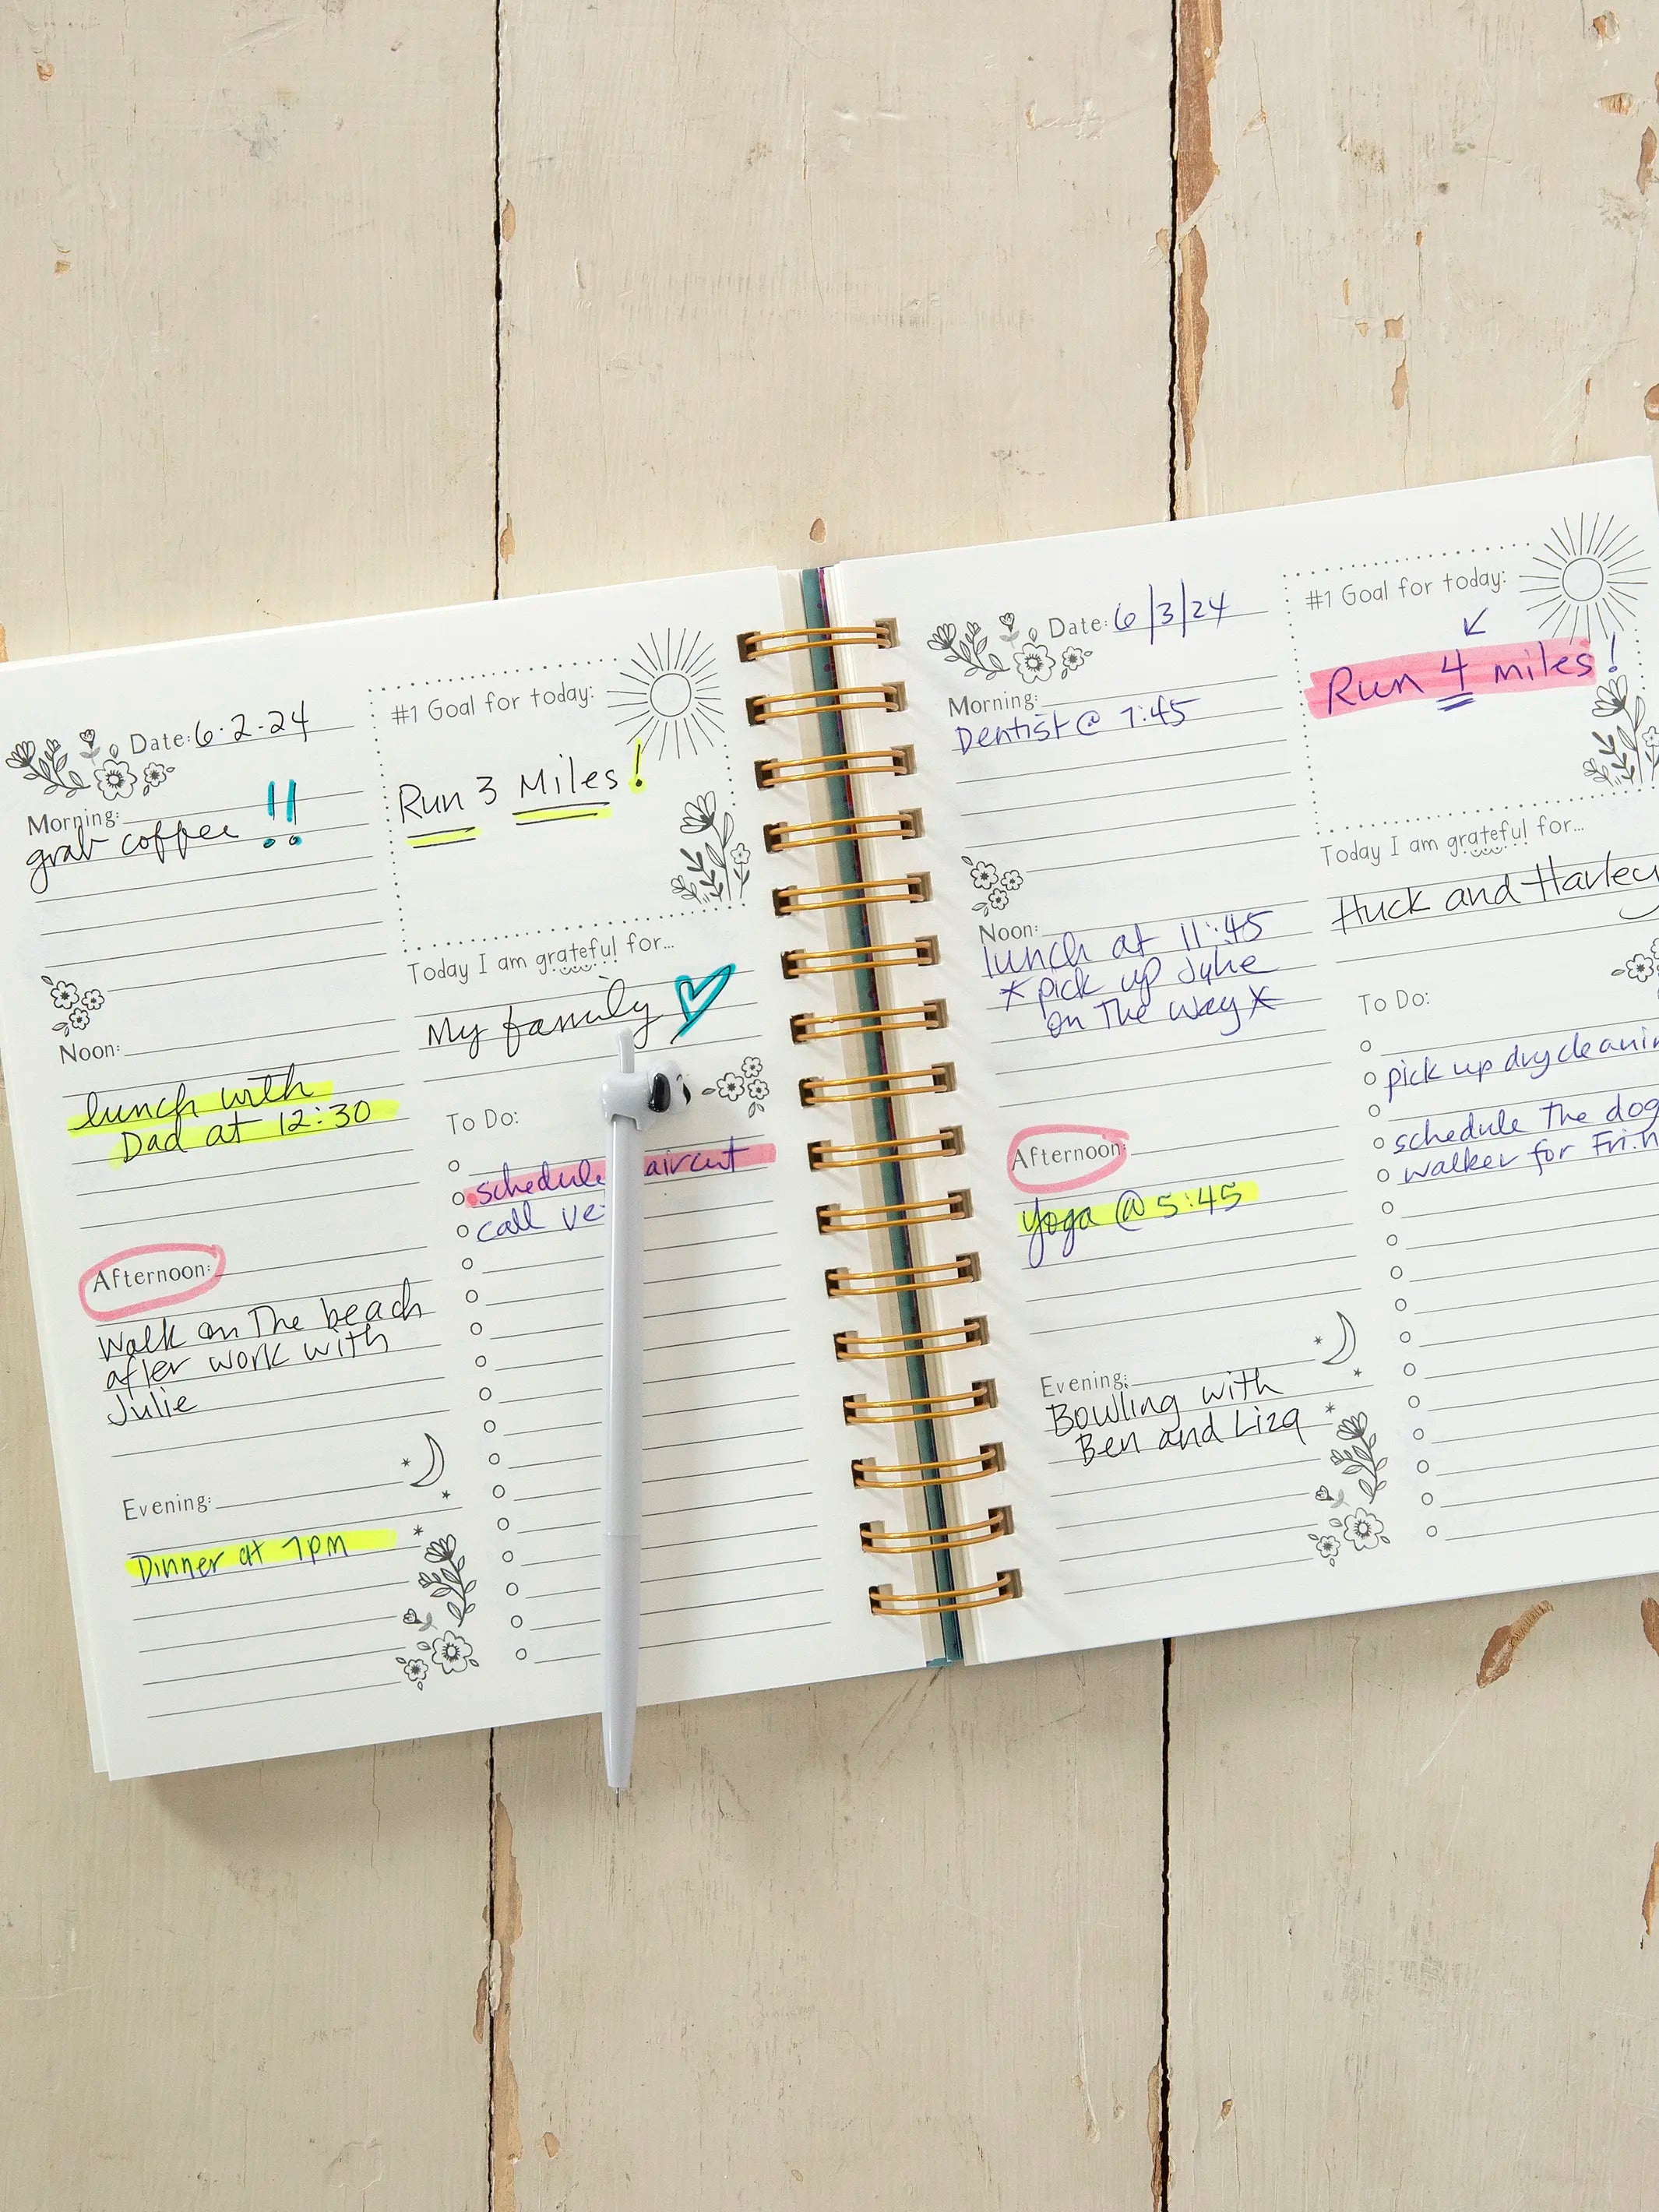 Date: 6·2·24
Morning:
grab coffee !!
Noon:
lunch with
Dad at 12:30
Afternoon:
Walk on The beach
after work with
Julie
Evening:
Dinner at 7pm
#1 Goal for today:
Run 3 Miles!
Today I am grateful for...
My family
To Do:
schedule aircut
call ve
Date: 6/3/24
Morning:
Dentist @ 7:45
Noon:
lunch at 11:45
*pick up Julie
on The way*
Afternoon:
yoga @ 5:45
Evening:
Bowling with
Ben and Liza
#1 Goal for today:
Run 4 miles!
Today I am grateful for...
Huck and Harley
To Do:
pick up drycleanin
schedule The dog
walker for Fri.n